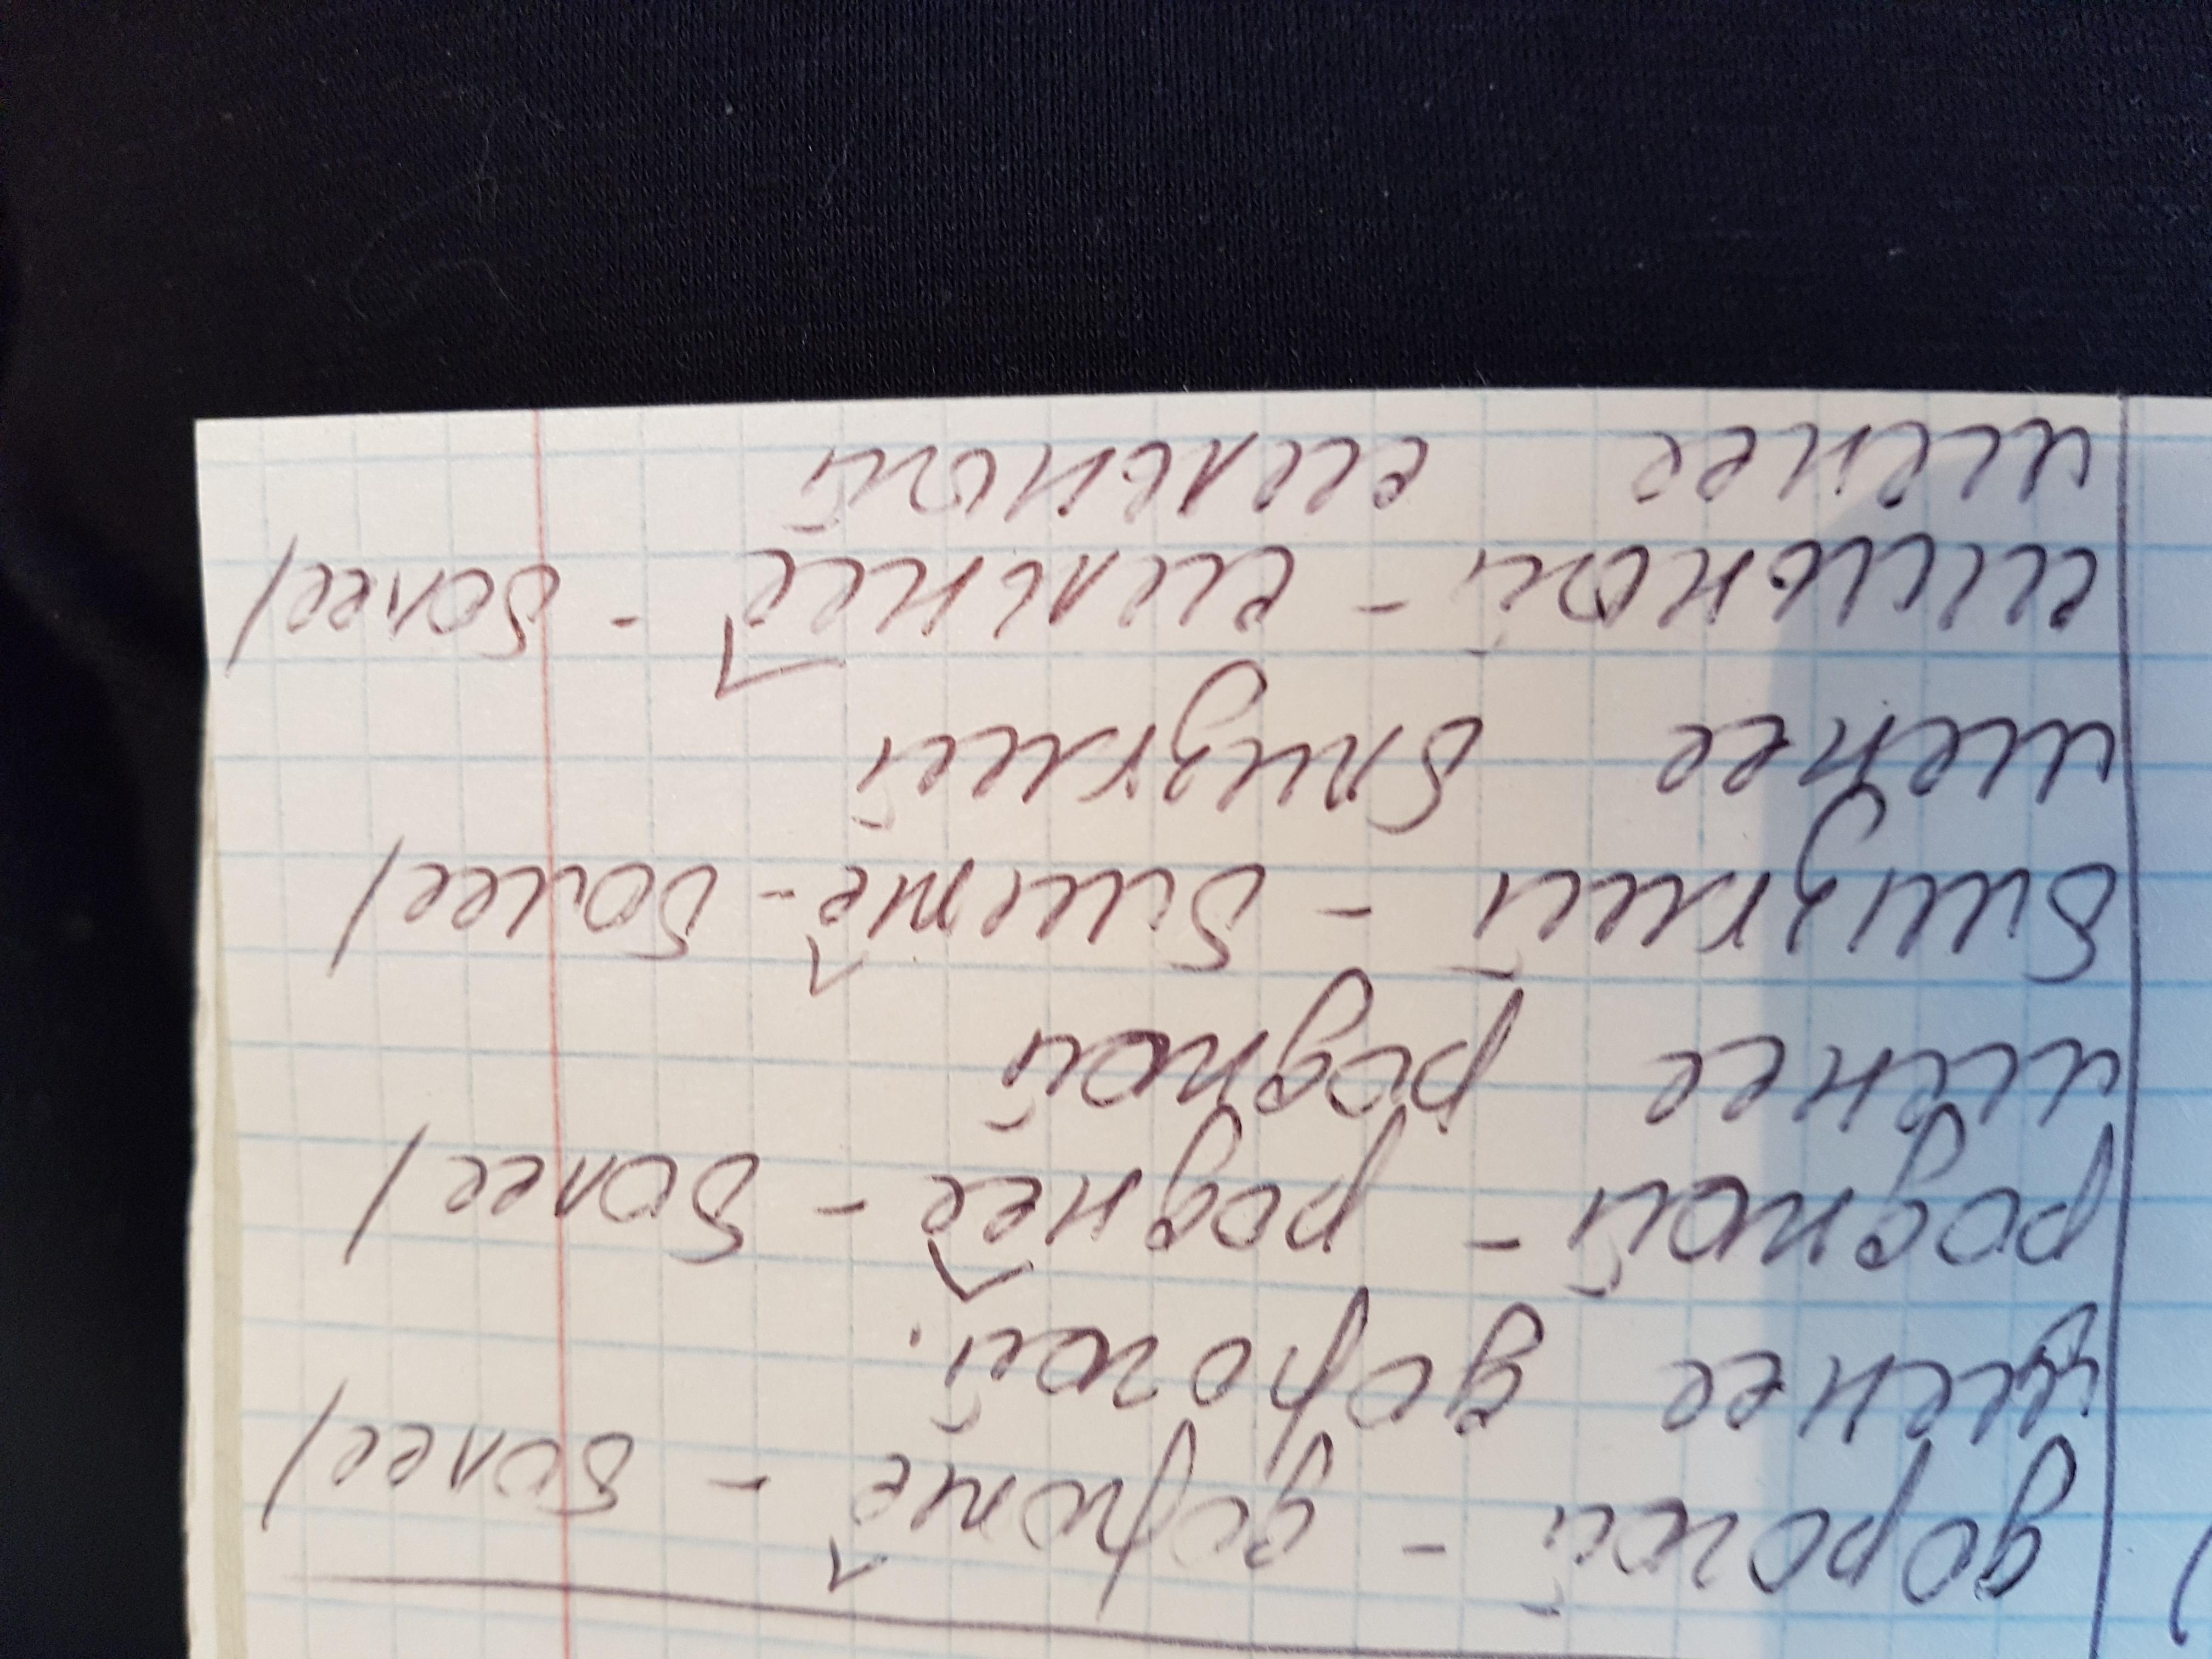 дорогой - дороже - более/
менее дорогой.
родной - роднее - более/
менее родной
близкий - ближе - более/
менее близкий
сильной - сильнее - более/
менее сильной